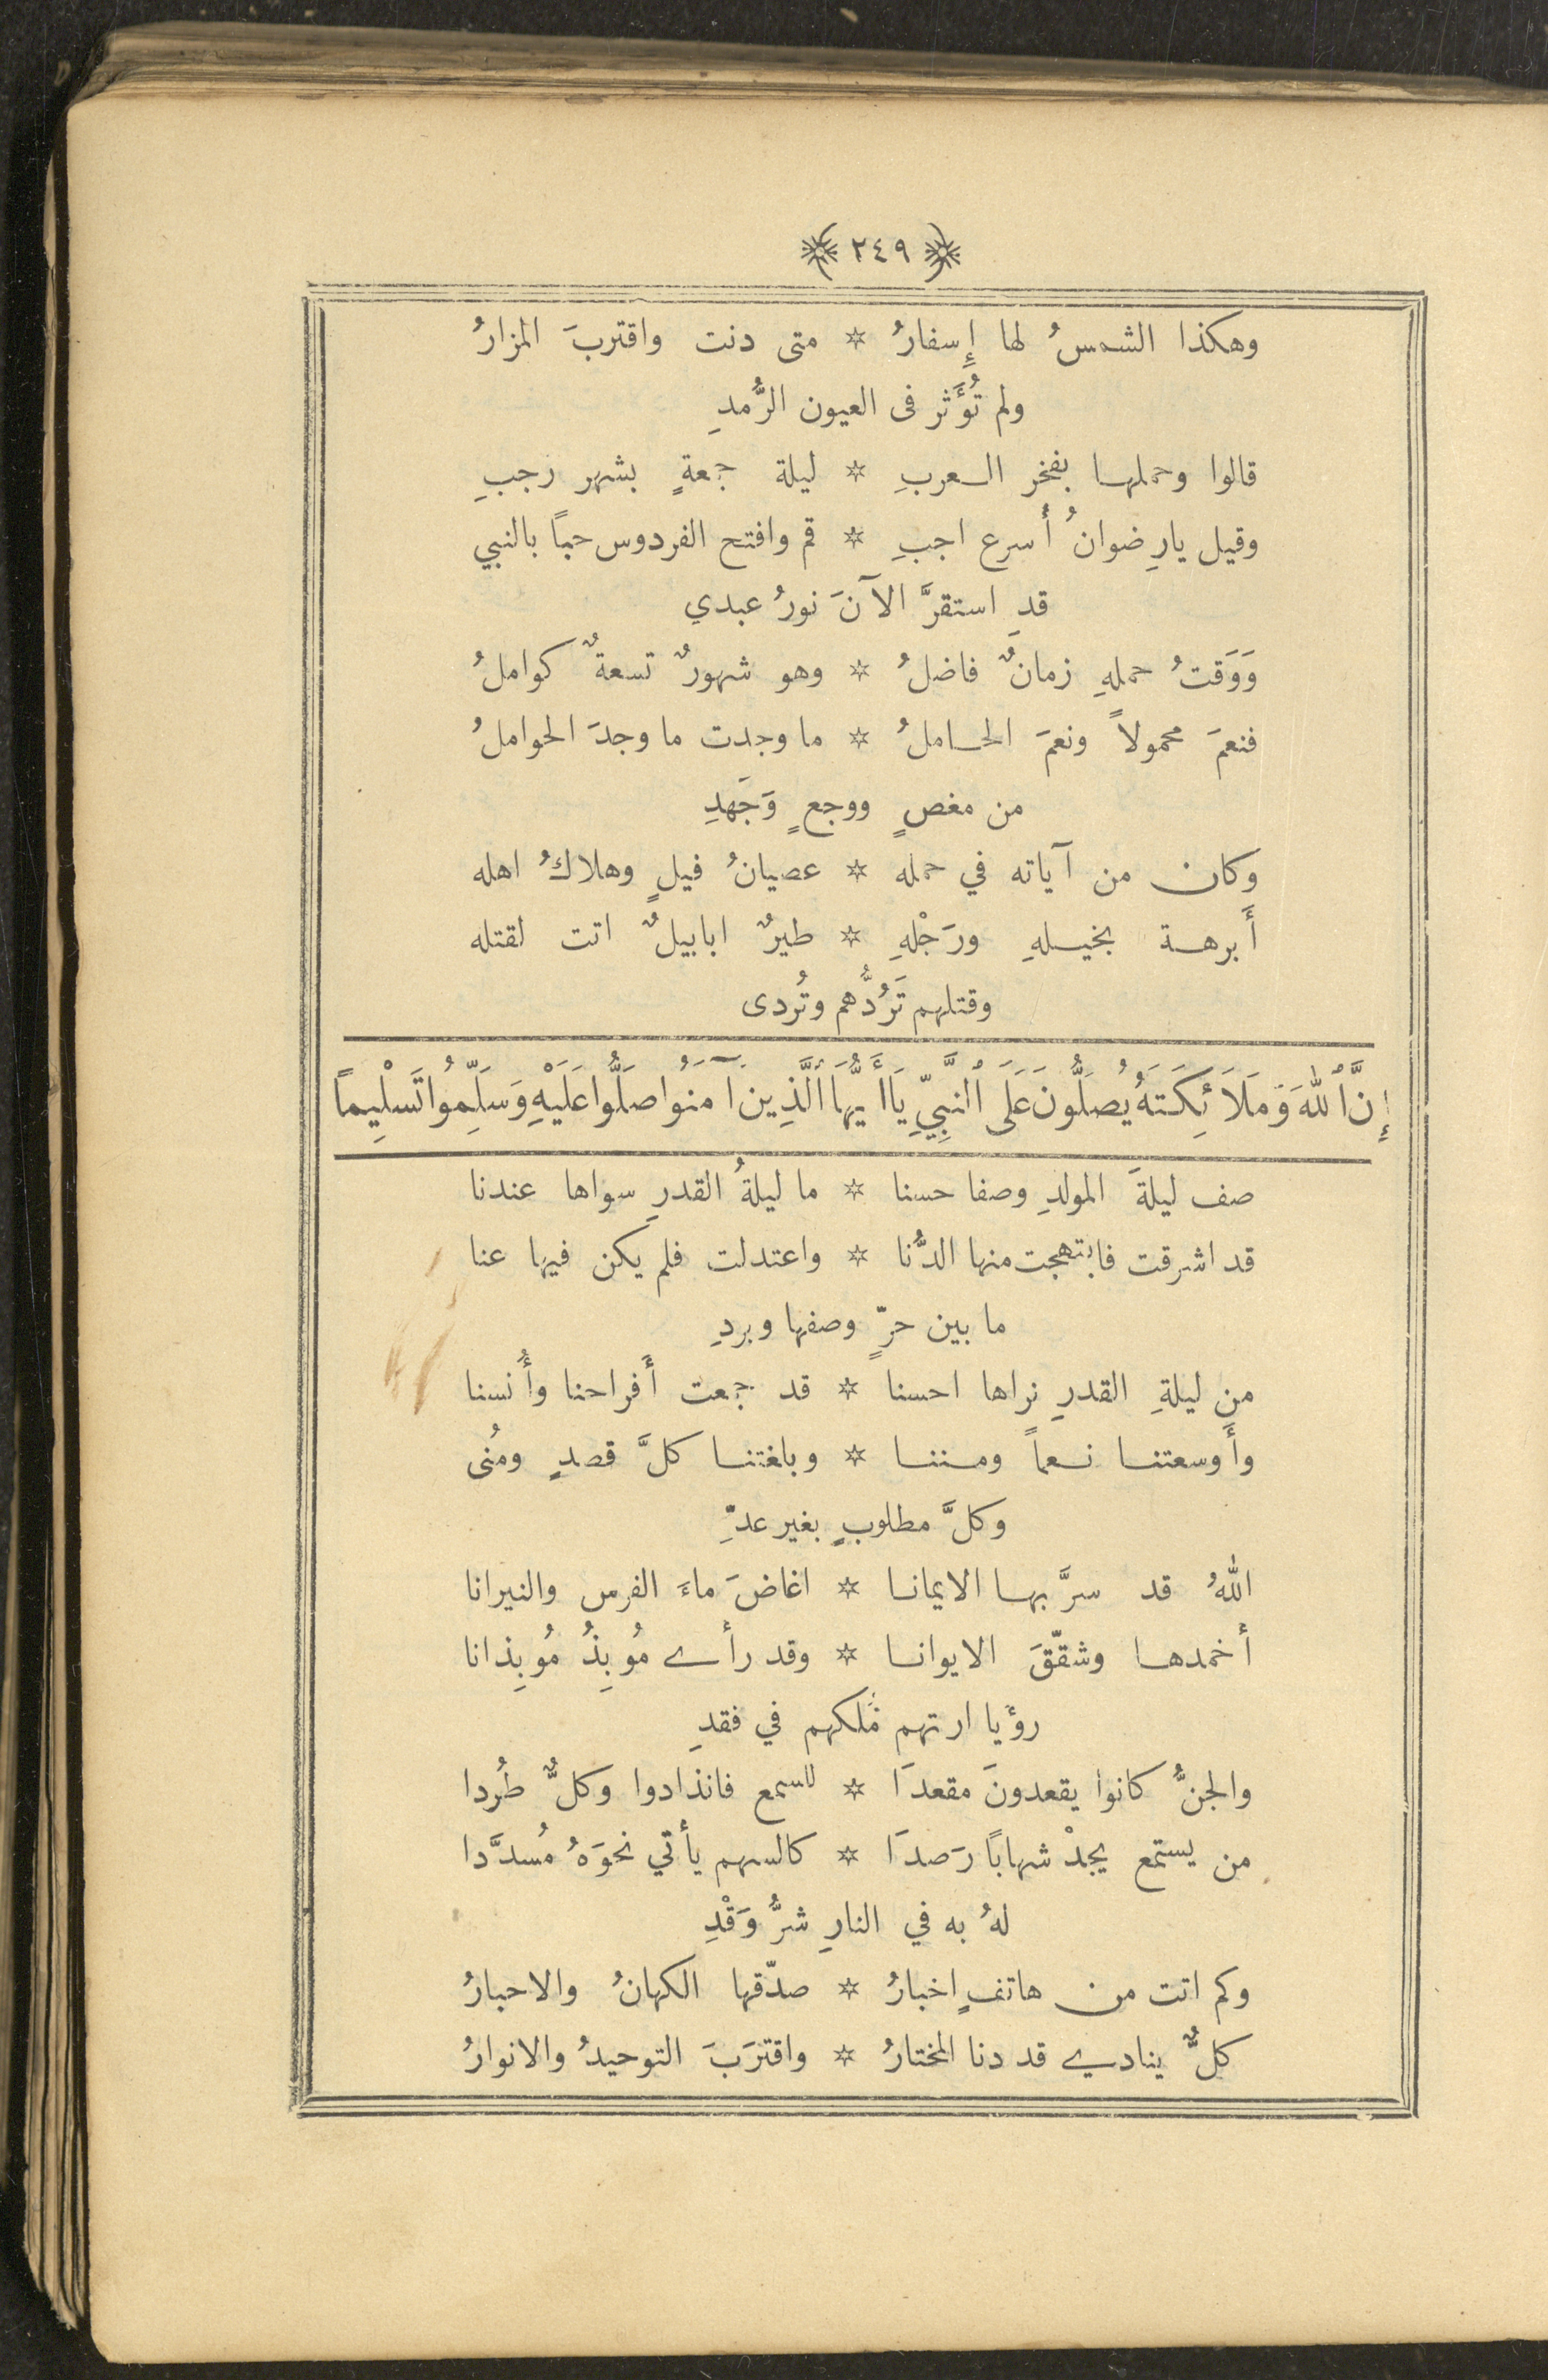 ﴿ ٢٤٩ ﴾
وهكذا الشمسُ لها إِسفارُ * متى دنت واقتربَ المزارُ
ولم تُؤَثر فى العيون الرُّمدِ
قالوا وحملها بفخر العربِ * ليلة جمعةٍ بشهر رجبِ
وقيل يارِضوانُ أَسرع اجبِ * قم وافتح الفردوس حباً بالنبي
قدِ استقرَّ الآنَ نورُ عبدي
وَوَقتُ حملهِ زمانٌ فاضلُ * وهو شهورٌ تسعةٌ كواملُ
فنعمَ محمولاً ونعمَ الحاملُ * ما وجدت ما وجدَ الحواملُ
من مغصٍ ووجعٍ وَجَهدِ
وكان من آياته في حمله * عصيانُ فيلٍ وهلاكُ اهله
أَبرهة بخيلهِ ورَجْلهِ * طيرٌ ابابيلٌ اتت لقتله
وقتلهم تَرُدُّهم وتُردى
إِنَّ ٱللهَ وَمَلَائِكَتَهُ يُصَلُّونَ عَلَى ٱلنَّبِيِّ يَاأَيُّهَا ٱلَّذِينَ آمَنُوا صَلُّوا عَلَيْهِ وَسَلِّمُوا تَسْلِيماً
صف ليلةَ المولدِ وصفا حسنا * ما ليلةُ القدرِ سواها عندنا
قد اشرقت فابتهجت منها الدُّنا * واعتدلت فلم يكن فيها عنا
ما بين حرٍّ وصفها وبردِ
من ليلةِ القدرِ نراها احسنا * قد جمعت أَفراحنا وأُنسنا
وأَوسعتنا نعماً ومننا * وبلغتنا كلَّ قصدٍ ومُنى
وكلَّ مطلوبٍ بغير عدِّ
اللهُ قد سرَّ بها الايمانا * اغاضَ ماءَ الفرس والنيرانا
أخمدها وشقّقَ الايوانا * وقد رأى مُوبِذُ مُوبِذانا
رؤيا ارتهم مُلكهم في فقدِ
والجنُّ كانوا يقعدونَ مقعدَا * للسمع فانذادوا وكلٌّ طُردا
من يستمع يجدْ شهاباً رَصدَا * كالسهم يأتي نحوَهُ مُسدَّدا
لهُ به في النارِ شرُّ وَقْدِ
وكم اتت من هاتفٍ اخبارُ * صدّقها الكهانُ والاحبارُ
كلٌّ ينادي قد دنا المختارُ * واقترَبَ التوحيدُ والانوارُ